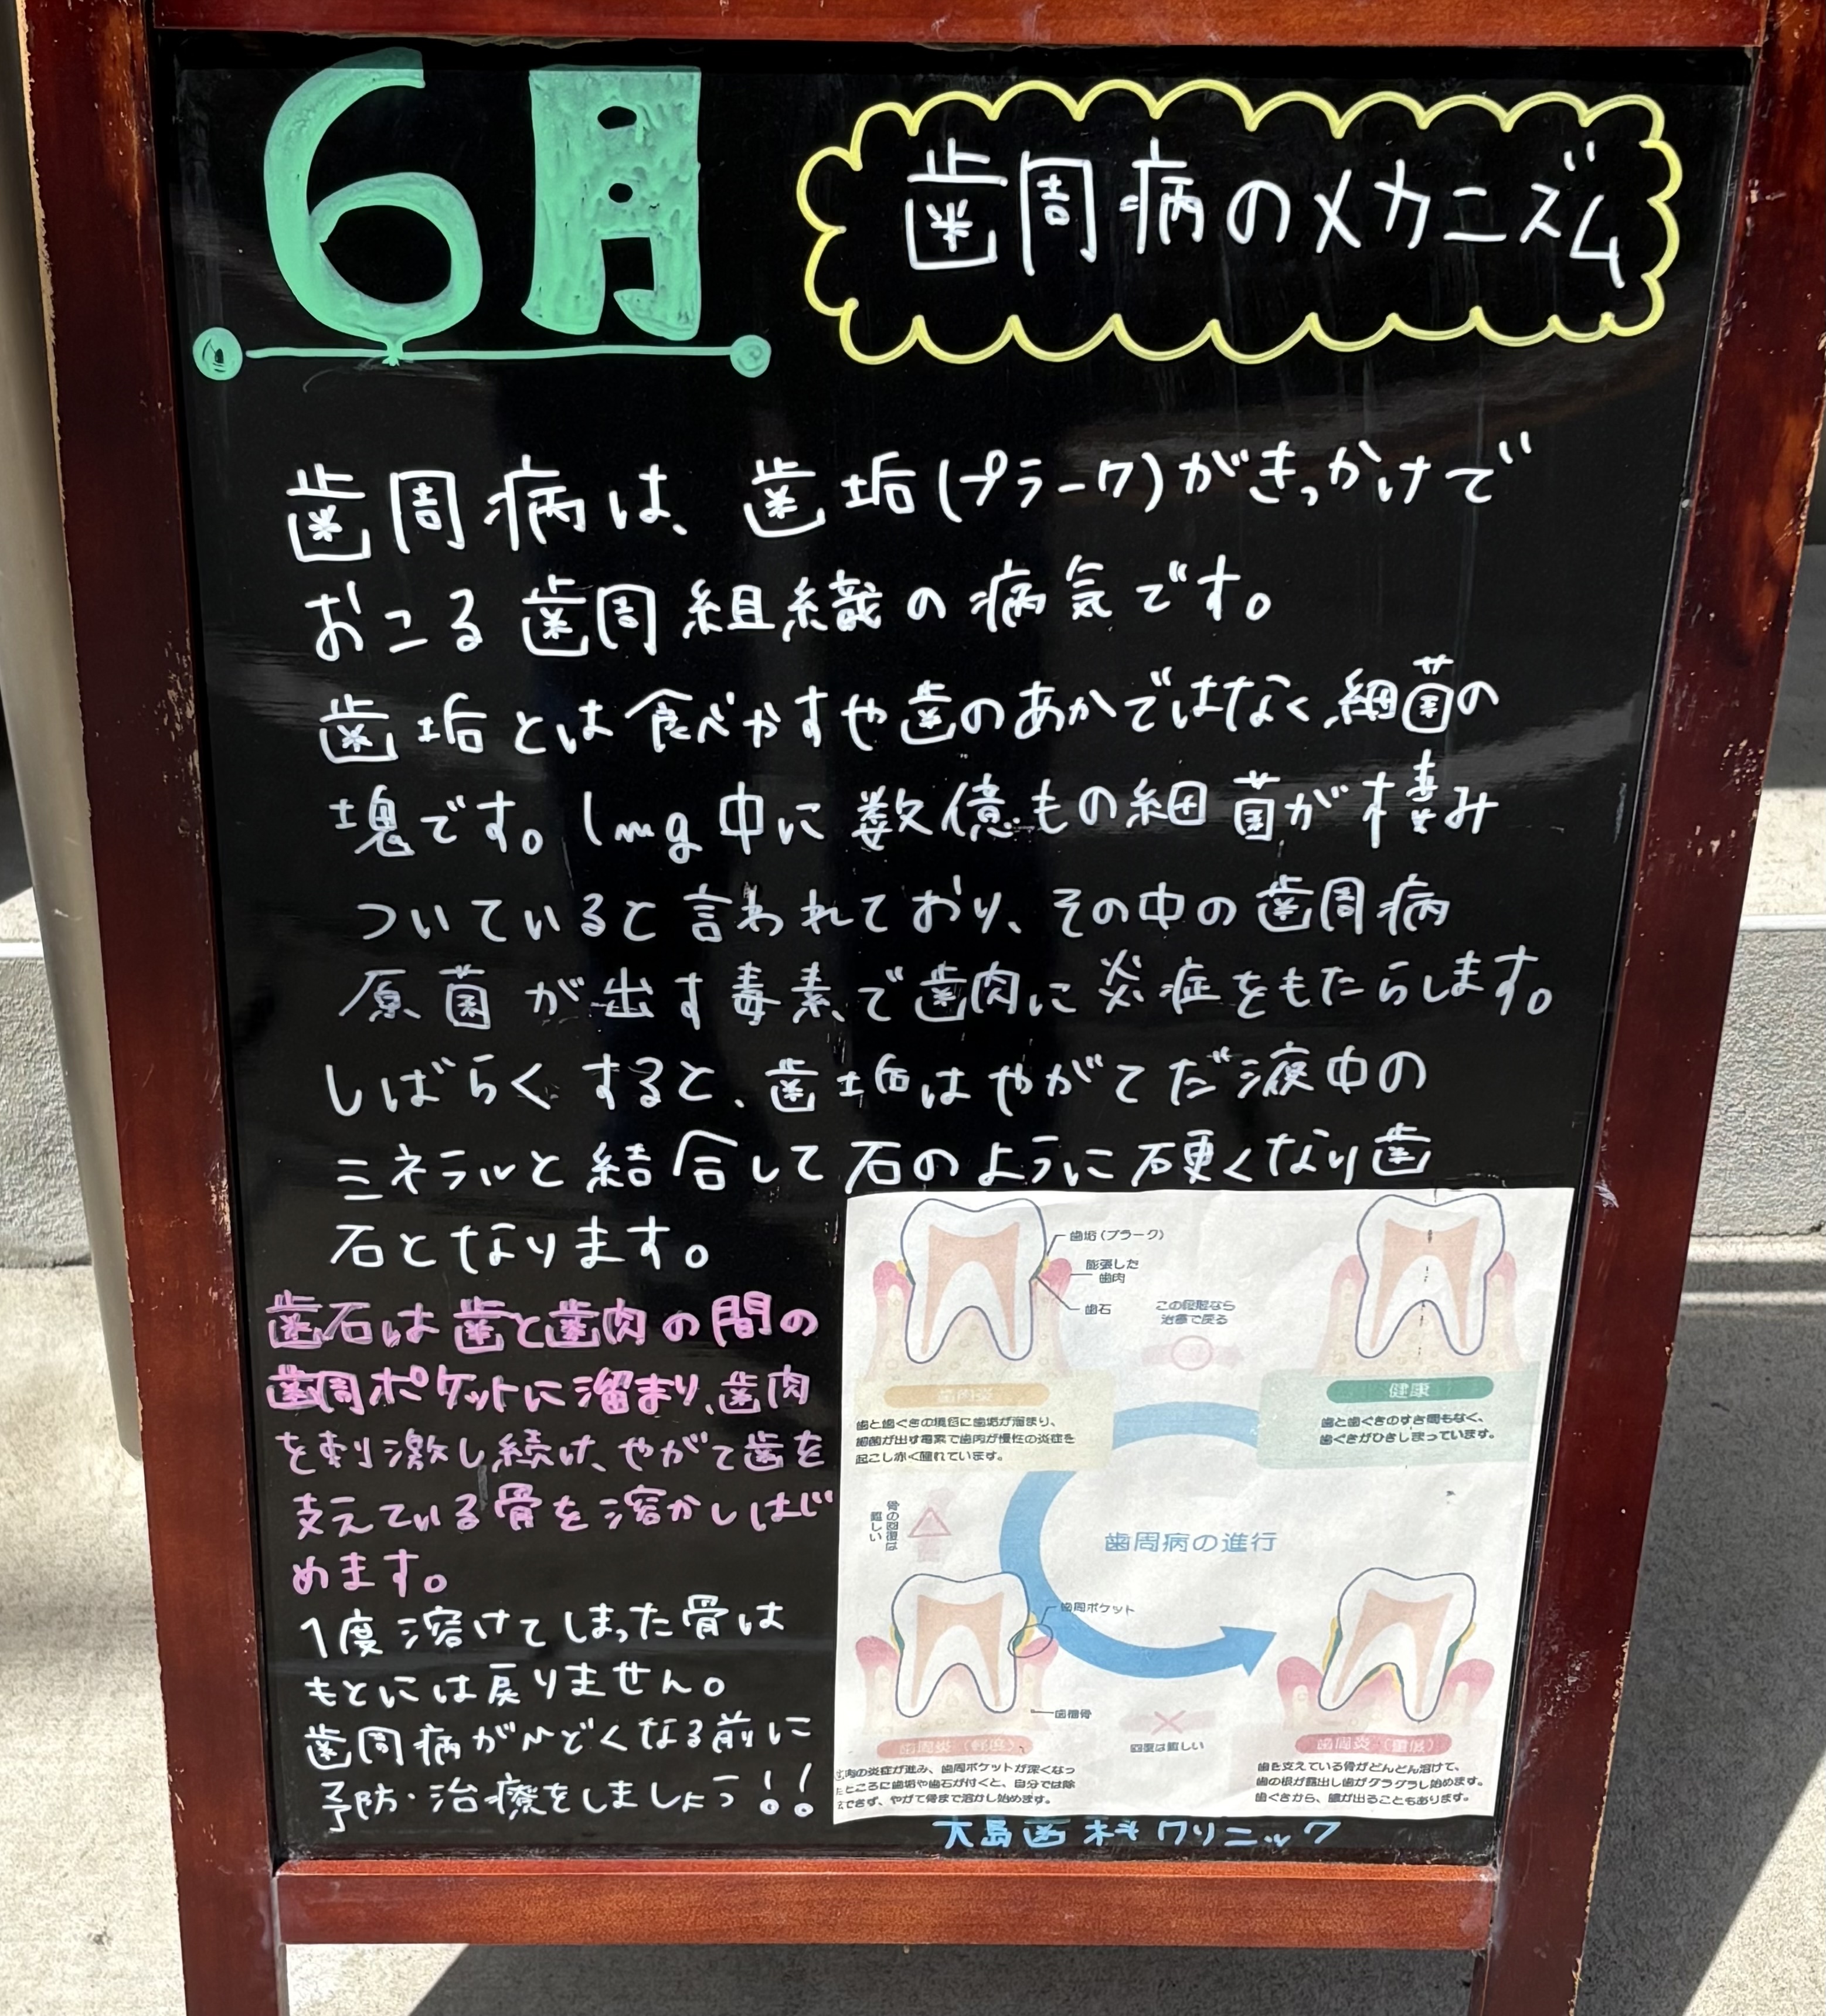 6月
歯周病のメカニズム
歯周病は、歯垢(プラーク)がきっかけで
おこる歯周組織の病気です。
歯垢とは食べかすや歯のあかではなく、細菌の
塊です。1mg中に数億もの細菌が棲み
ついていると言われており、その中の歯周病
原菌が出す毒素で歯肉に炎症をもたらします。
しばらくすると、歯垢はやがてだ液中の
ミネラルと結合して石のように硬くなり歯
石となります。
歯石は歯と歯肉の間の
歯周ポケットに溜まり、歯肉
を刺激し続け、やがて歯を
支えている骨を溶かしはじ
めます。
1度溶けてしまった骨は
もとには戻りません。
歯周病がひどくなる前に
予防・治療をしましょう!!
歯垢(プラーク)
膨張した
歯肉
歯石
この段階なら
治療で戻る
歯肉炎
歯と歯ぐきの境目に歯垢が溜まり、
歯菌が出す毒素で歯肉が慢性の炎症を
起こし赤く腫れています。
健康
歯と歯ぐきのすき間もなく、
歯ぐきがひきしまっています。
骨の回復は
難しい
歯周病の進行
歯周ポケット
歯槽骨
歯周炎(軽度)
肉の炎症が進み、歯周ポケットが深くなっ
たところに歯垢や歯石が付くと、自分では除
できず、やがて骨まで溶かし始めます。
回復は難しい
歯周炎(重度)
歯を支えている骨がどんどん溶けて、
歯の根が露出し歯がグラグラし始めます。
歯ぐきから、膿が出ることもあります。
大島歯科クリニック